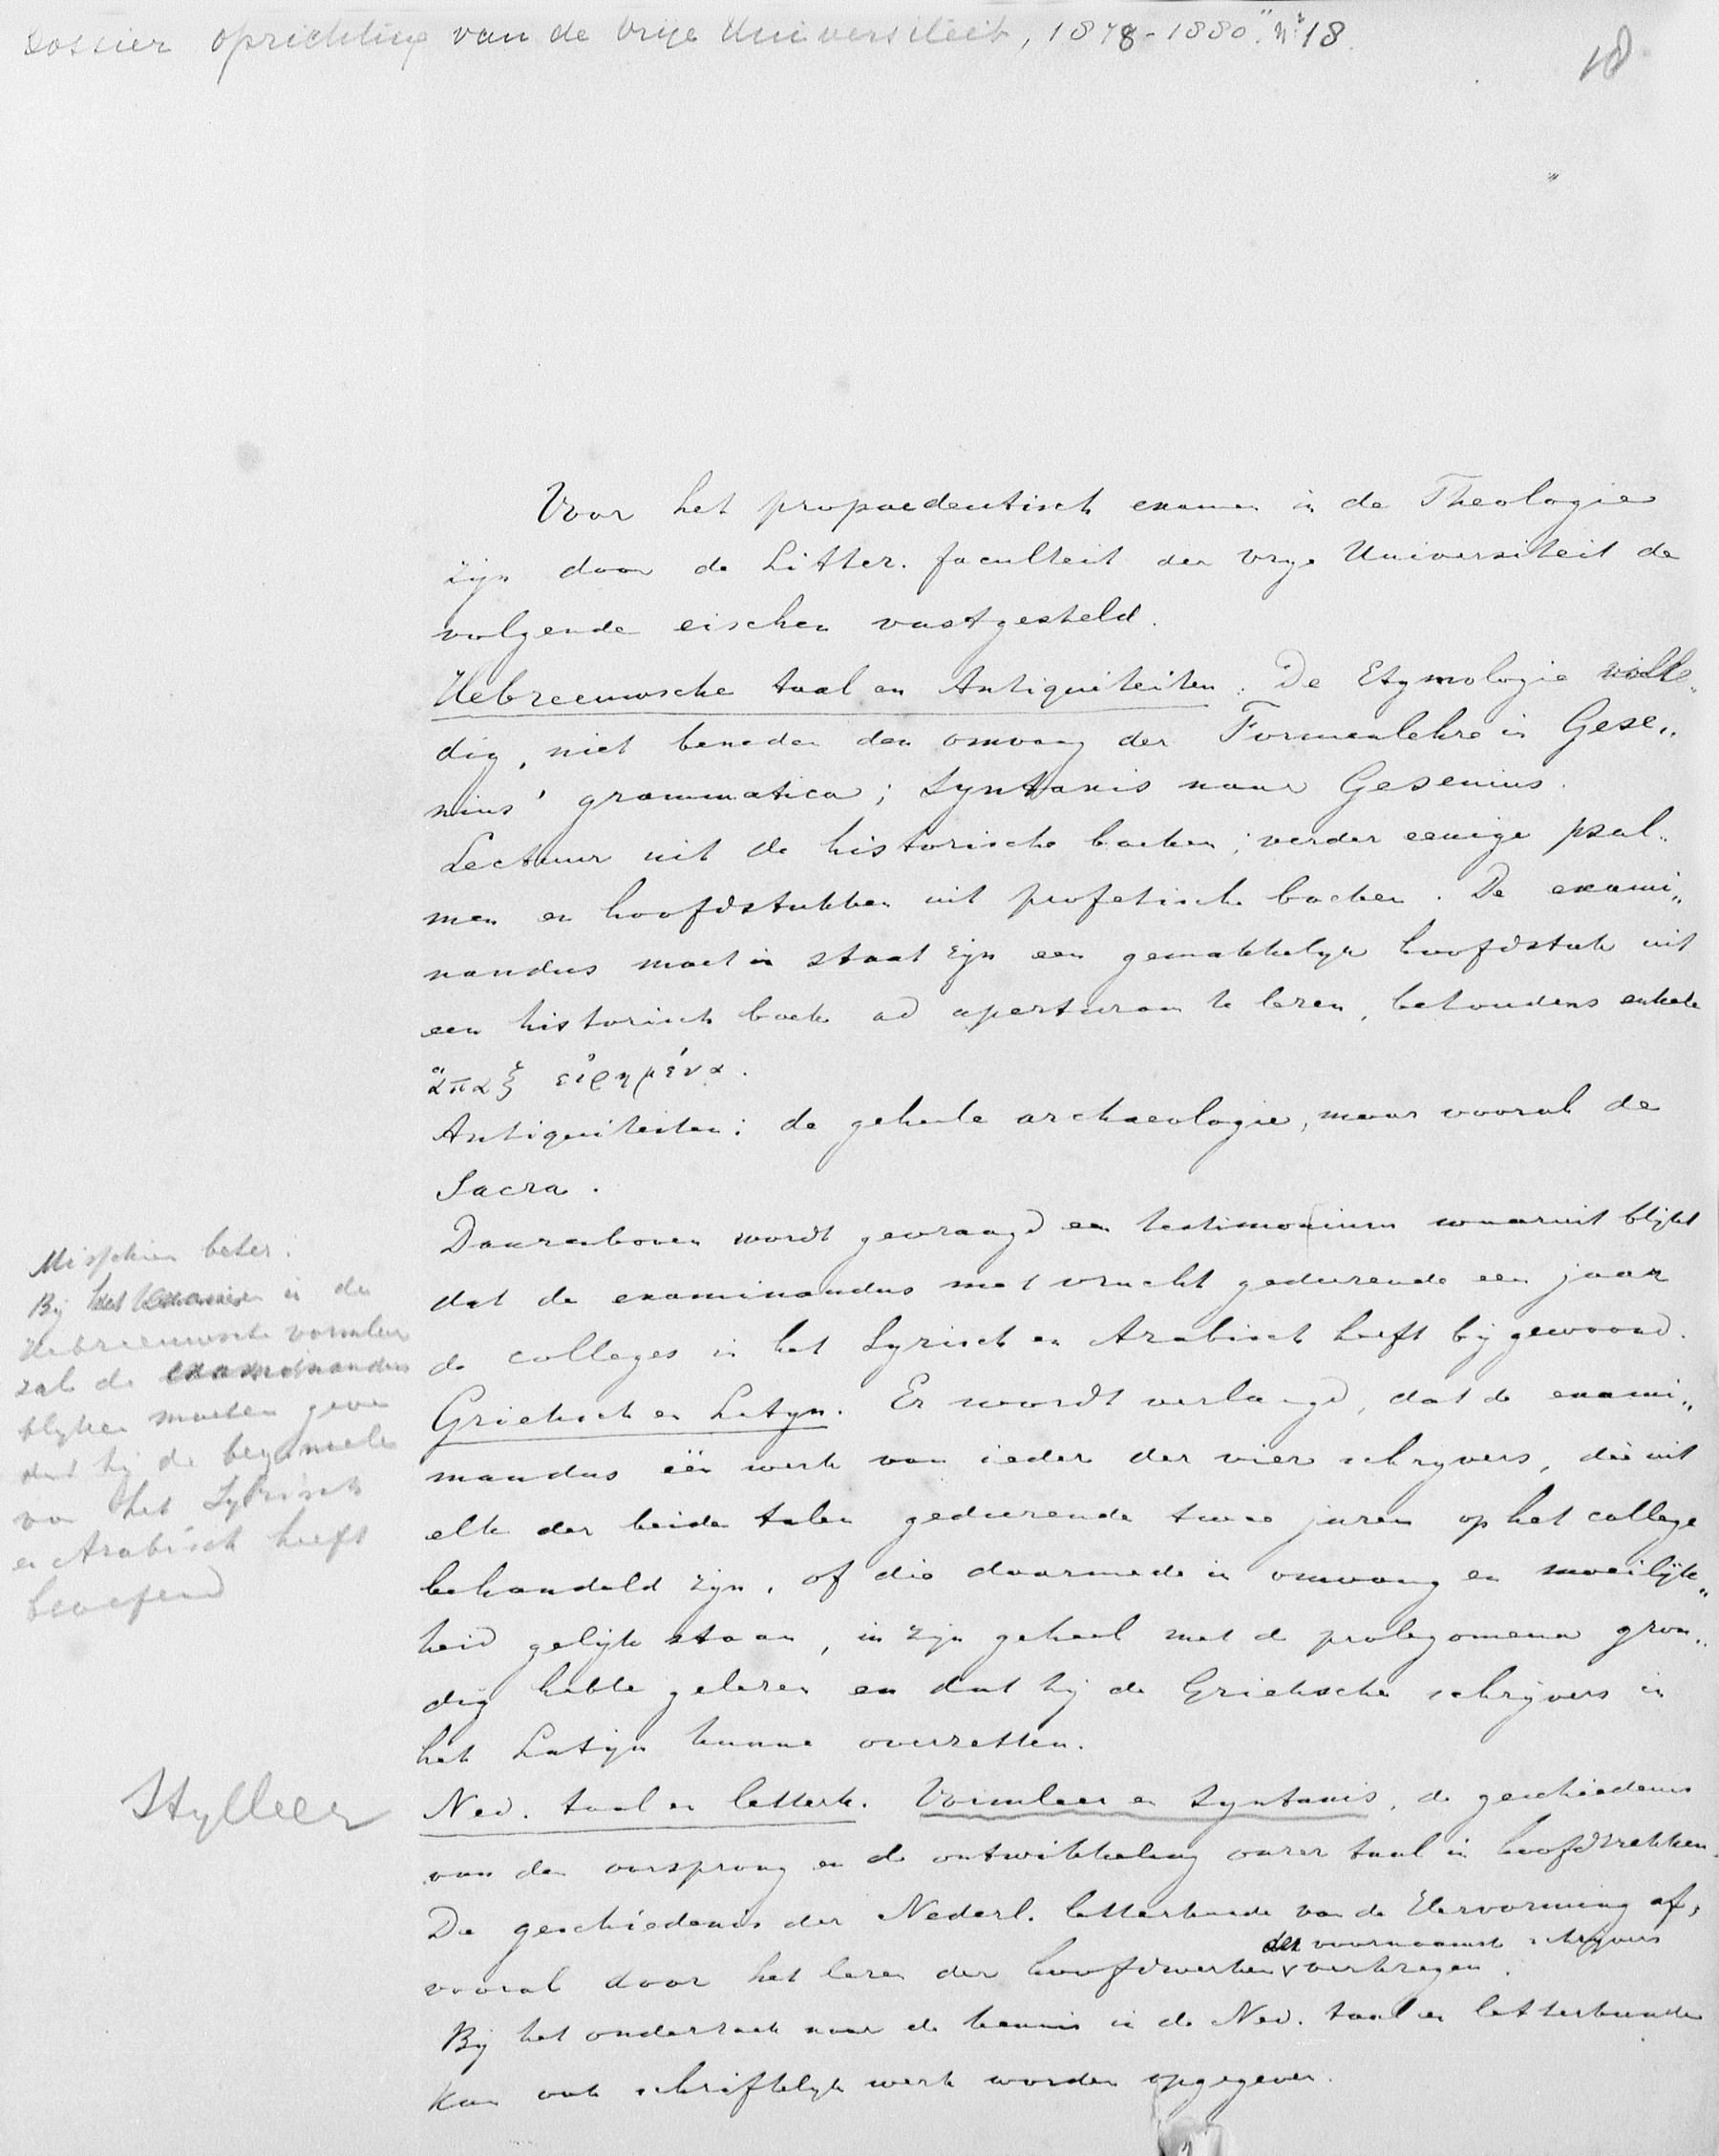 Dossier oprichting van de Vrije Universiteit, 1878-1880" No 18.
18
Voor het propaedeutisch examen in de Theologie
zijn door de Litter. faculteit der Vrije Universiteit de
volgende eischen vastgesteld.
Hebreeuwsche taal en Antiquiteiten. De Etymologie volle„
dig, niet beneden den omvang der Formenlehre in Gese„
nius' grammatica; Syntaxis naar Gesenius.
Lectuur uit de historische boeken; verder eenige psal„
men en hoofdstukken uit profetische boeken. De exami„
nandus moet in staat zijn een gemakkelijk hoofdstuk uit
een historisch boek ad aperturam te lezen, behoudens enkele
ἅπαξ εἰρημένα.
Antiquiteiten: de geheele archaeologie, maar vooral de
Sacra.
Daarenboven wordt gevraagd een testimonium waaruit blijkt
dat de examinandus met vrucht gedurende een jaar
de colleges in het Syrisch en Arabisch heeft bijgewoond.
Grieksch en Latijn. Er wordt verlangd, dat de exami„
nandus één werk van ieder der vier schrijvers, die uit
elk der beide talen gedurende twee jaren op het college
behandeld zijn, of die daarmede in omvang en moeilijk„
heid gelijk staan, in zijn geheel met de prolegomena gron„
dig hebbe gelezen en dat hij de Grieksche schrijvers in
het Latijn kunne overzetten.
Ned. taal en letterk. Vormleer en Syntaxis, de geschiedenis
van den oorsprong en de ontwikkeling onzer taal in hoofdtrekken.
De geschiedenis der Nederl. letterkunde van de Hervorming af,
der voornaamste schrijvers
vooral door het lezen der hoofdwerken verkregen.
Bij het onderzoek naar de kennis in de Ned. taal en letterkunde
kan ook schriftelijk werk worden opgegeven.
Misschien beter:
Bij het examen in de
Hebreeuwsche vormleer
zal de examinandus
blijken moeten geven
dat hij de beginselen
van het Syrisch
en Arabisch heeft
beoefend
Stylleer